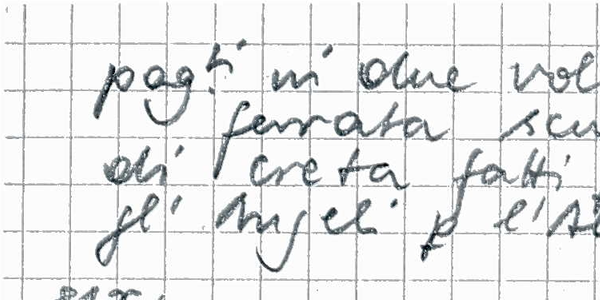 pag.ti in due vol
ferrata scu
di creta fatti
gl'Angeli p l'Al